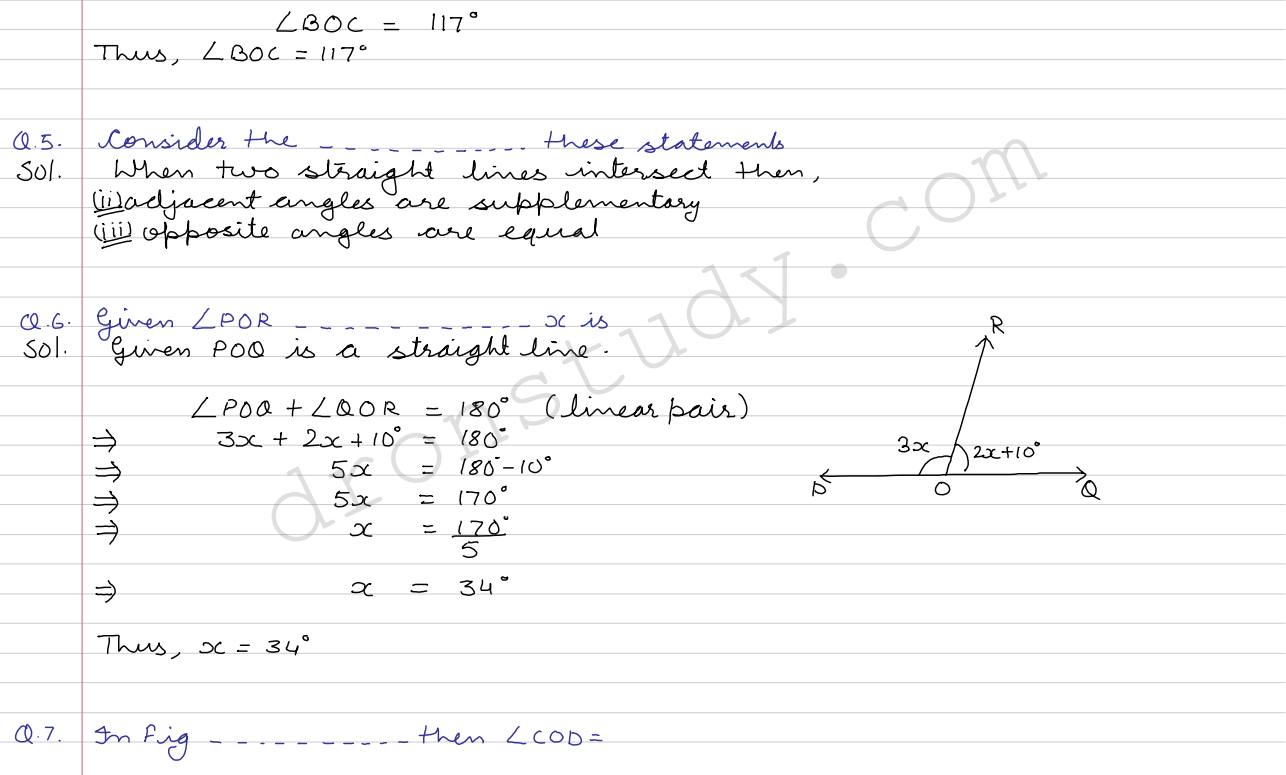 ∠BOC = 117°
Thus, ∠BOC = 117°
Q.5. Consider the - - - - - - - - - - - . these statements
Sol. When two straight lines intersect then,
(ii) adjacent angles are supplementary
(iii) opposite angles are equal
Q.6. Given ∠POR - - - - - - - - - - - - x is
Sol. Given POQ is a straight line.
∠POQ + ∠QOR = 180° (linear pair)
⇒ 3x + 2x + 10° = 180°
⇒ 5x = 180° - 10°
⇒ 5x = 170°
⇒ x = 170°/5
⇒ x = 34°
Thus, x = 34°
R
3x
2x+10°
P
O
Q
Q.7. In fig - - - - - - - - - - - then ∠COD =
dronstudy.com